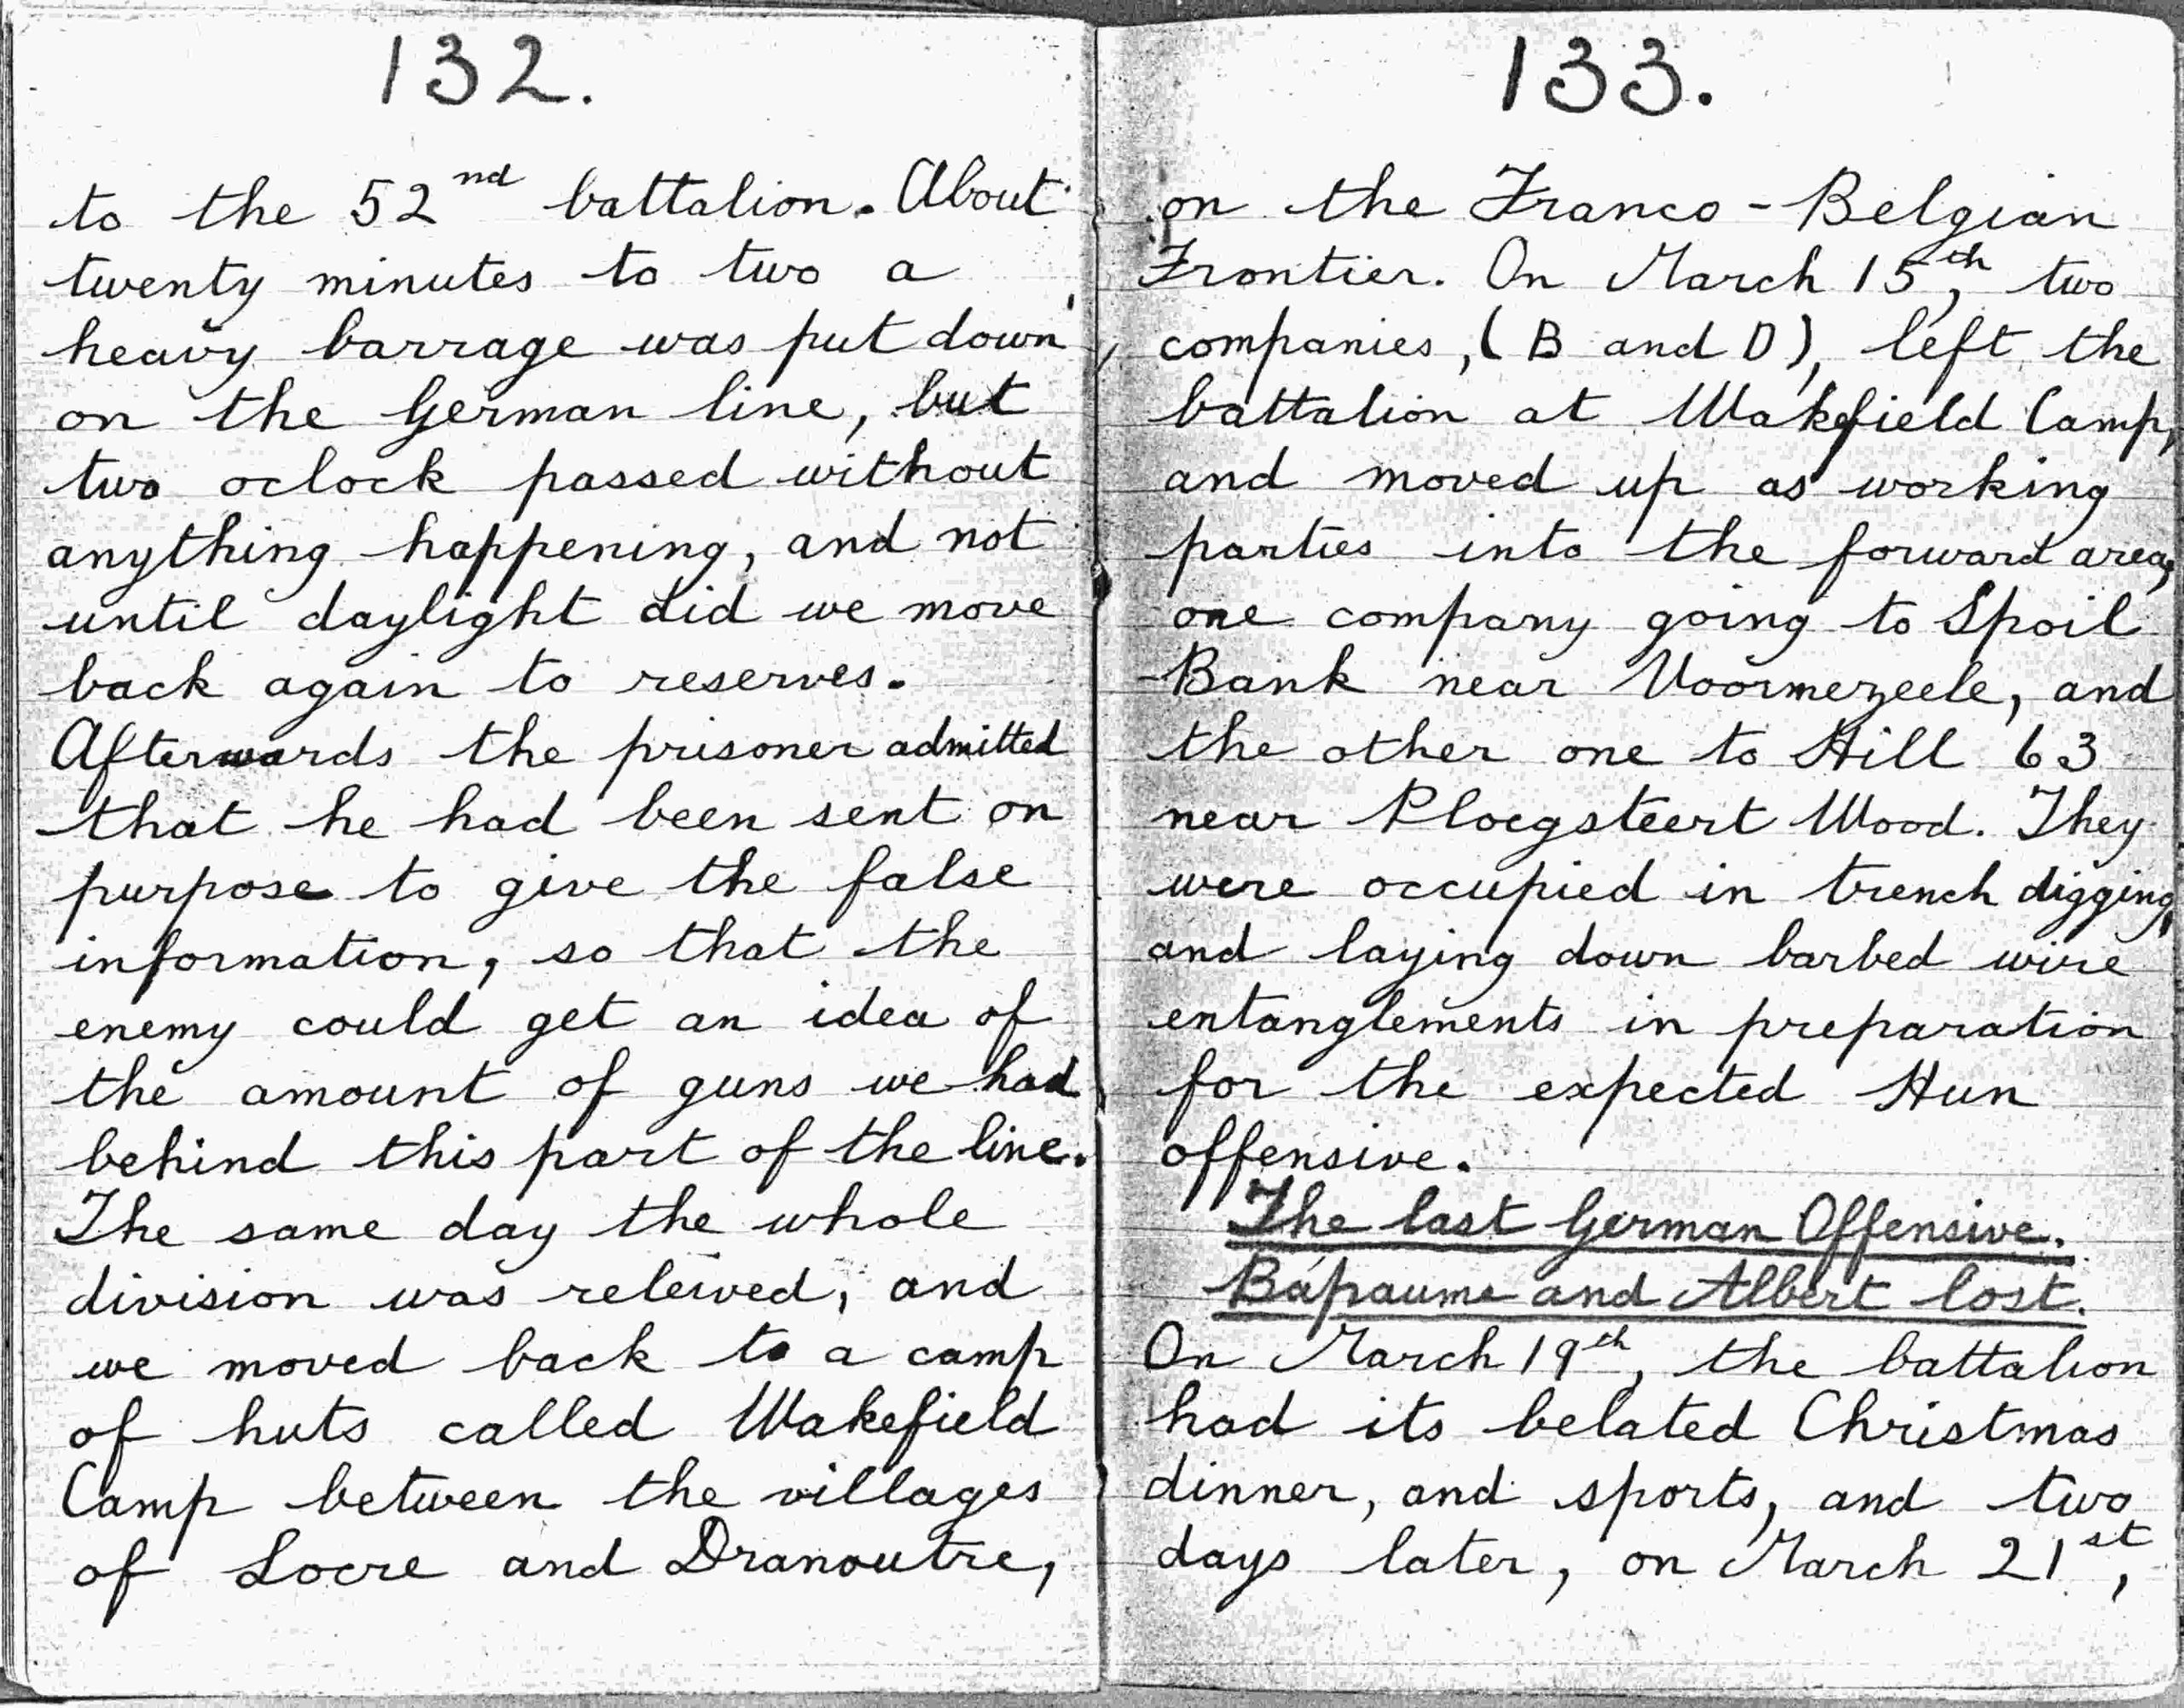 132.
to the 52nd battalion. About
twenty minutes to two a
heavy barrage was put down,
on the German line, but
two oclock passed without
anything happening, and not
until daylight did we move
back again to reserves.
Afterwards the prisoner admitted
that he had been sent on
purpose to give the false
information, so that the
enemy could get an idea of
the amount of guns we had
behind this part of the line.
The same day the whole
division was releived, and
we moved back to a camp
of huts called Wakefield
Camp between the villages
of Locre and Dranoutre,
133.
on the Franco-Belgian
Frontier. On March 15th, two
companies, (B and D), left the
battalion at Wakefield Camp,
and moved up as working
parties into the forward area,
one company going to Spoil
Bank near Voormezeele, and
the other one to Hill 63
near Ploegsteert Wood. They
were occupied in trench digging,
and laying down barbed wire
entanglements in preparation
for the expected Hun
offensive.
The last German Offensive.
Bapaume and Albert lost.
On March 19th, the battalion
had its belated Christmas
dinner, and sports, and two
days later, on March 21st,